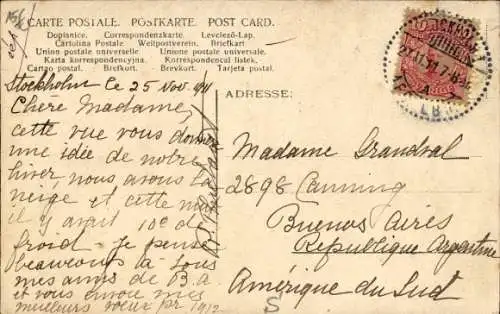 CARTE POSTALE. POSTKARTE. POST CARD.
Dopisnice. Correspondenzkarte. Levelező-Lap.
Cartolina Postale. Weltpostverein. Briefkart
Union postale universelle. Unione postale universale.
Karta korrespondencyjna. Korrespondencni listek.
Carton postal. Brefkort. Brevkort. Tarjeta postal.
Stockholm le 25 Nov. 1911
Chère Madame,
cette vue vous donne
une idée de notre
hiver, nous avons la
neige et cette nuit
il y avait 10c de
froid. Je pense
beaucoup à tous
mes amis de B. A
et vous envoie mes
meilleurs voeux pr 1912
ADRESSE:
Madame Grandval
2898 Canning
Buenos Aires
République Argentine
Amérique du Sud
S